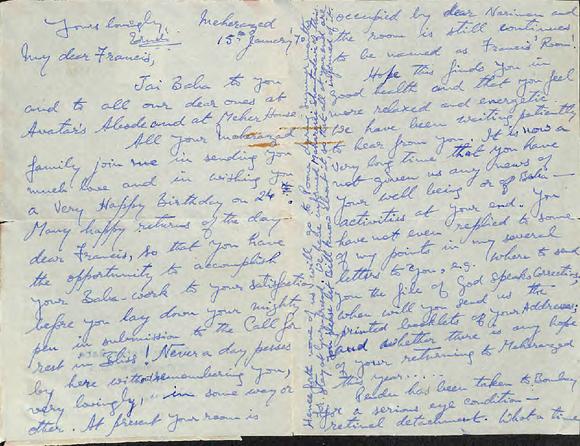 Yours lovingly,
Eruch
Meherazad
15th January 7
My dear Francis,
Jai Baba to you
and to all our dear ones at
Avatar's Abode and at Meher House
All your Meherazad
family join me in sending you
much love and in wishing you
a Very Happy Birthday on 24th.
Many happy returns of the day
dear Francis, so that you have
the opportunity to accomplish
your Baba-work to your satisfaction
before you lay down your mighty
pen in submission to the Call for
rest in Bliss! Never a day passes
by here without remembering you,
very lovingly, in some way or
other. At present your room is
occupied by dear Nariman and
the room is still continues
to be named as Francis' Room!
Hope this finds you in
good health and that you feel
more relaxed and energetic.
We have been waiting patiently
to hear from you. It is now a
very long time that you have
not given us any news of
your well being or of Baba-
activities at your end. You
have not even replied to some
of my points in my several
letters to you, e.g. where to send
you the file of God Speaks Corrections,
when will you send us the
printed booklets of your Addresses,
and whether there is any hope
of your returning to Meherazad
this year.....
Pendu has been taken to Bombay
for a serious eye condition —
retinal detachment. What a time